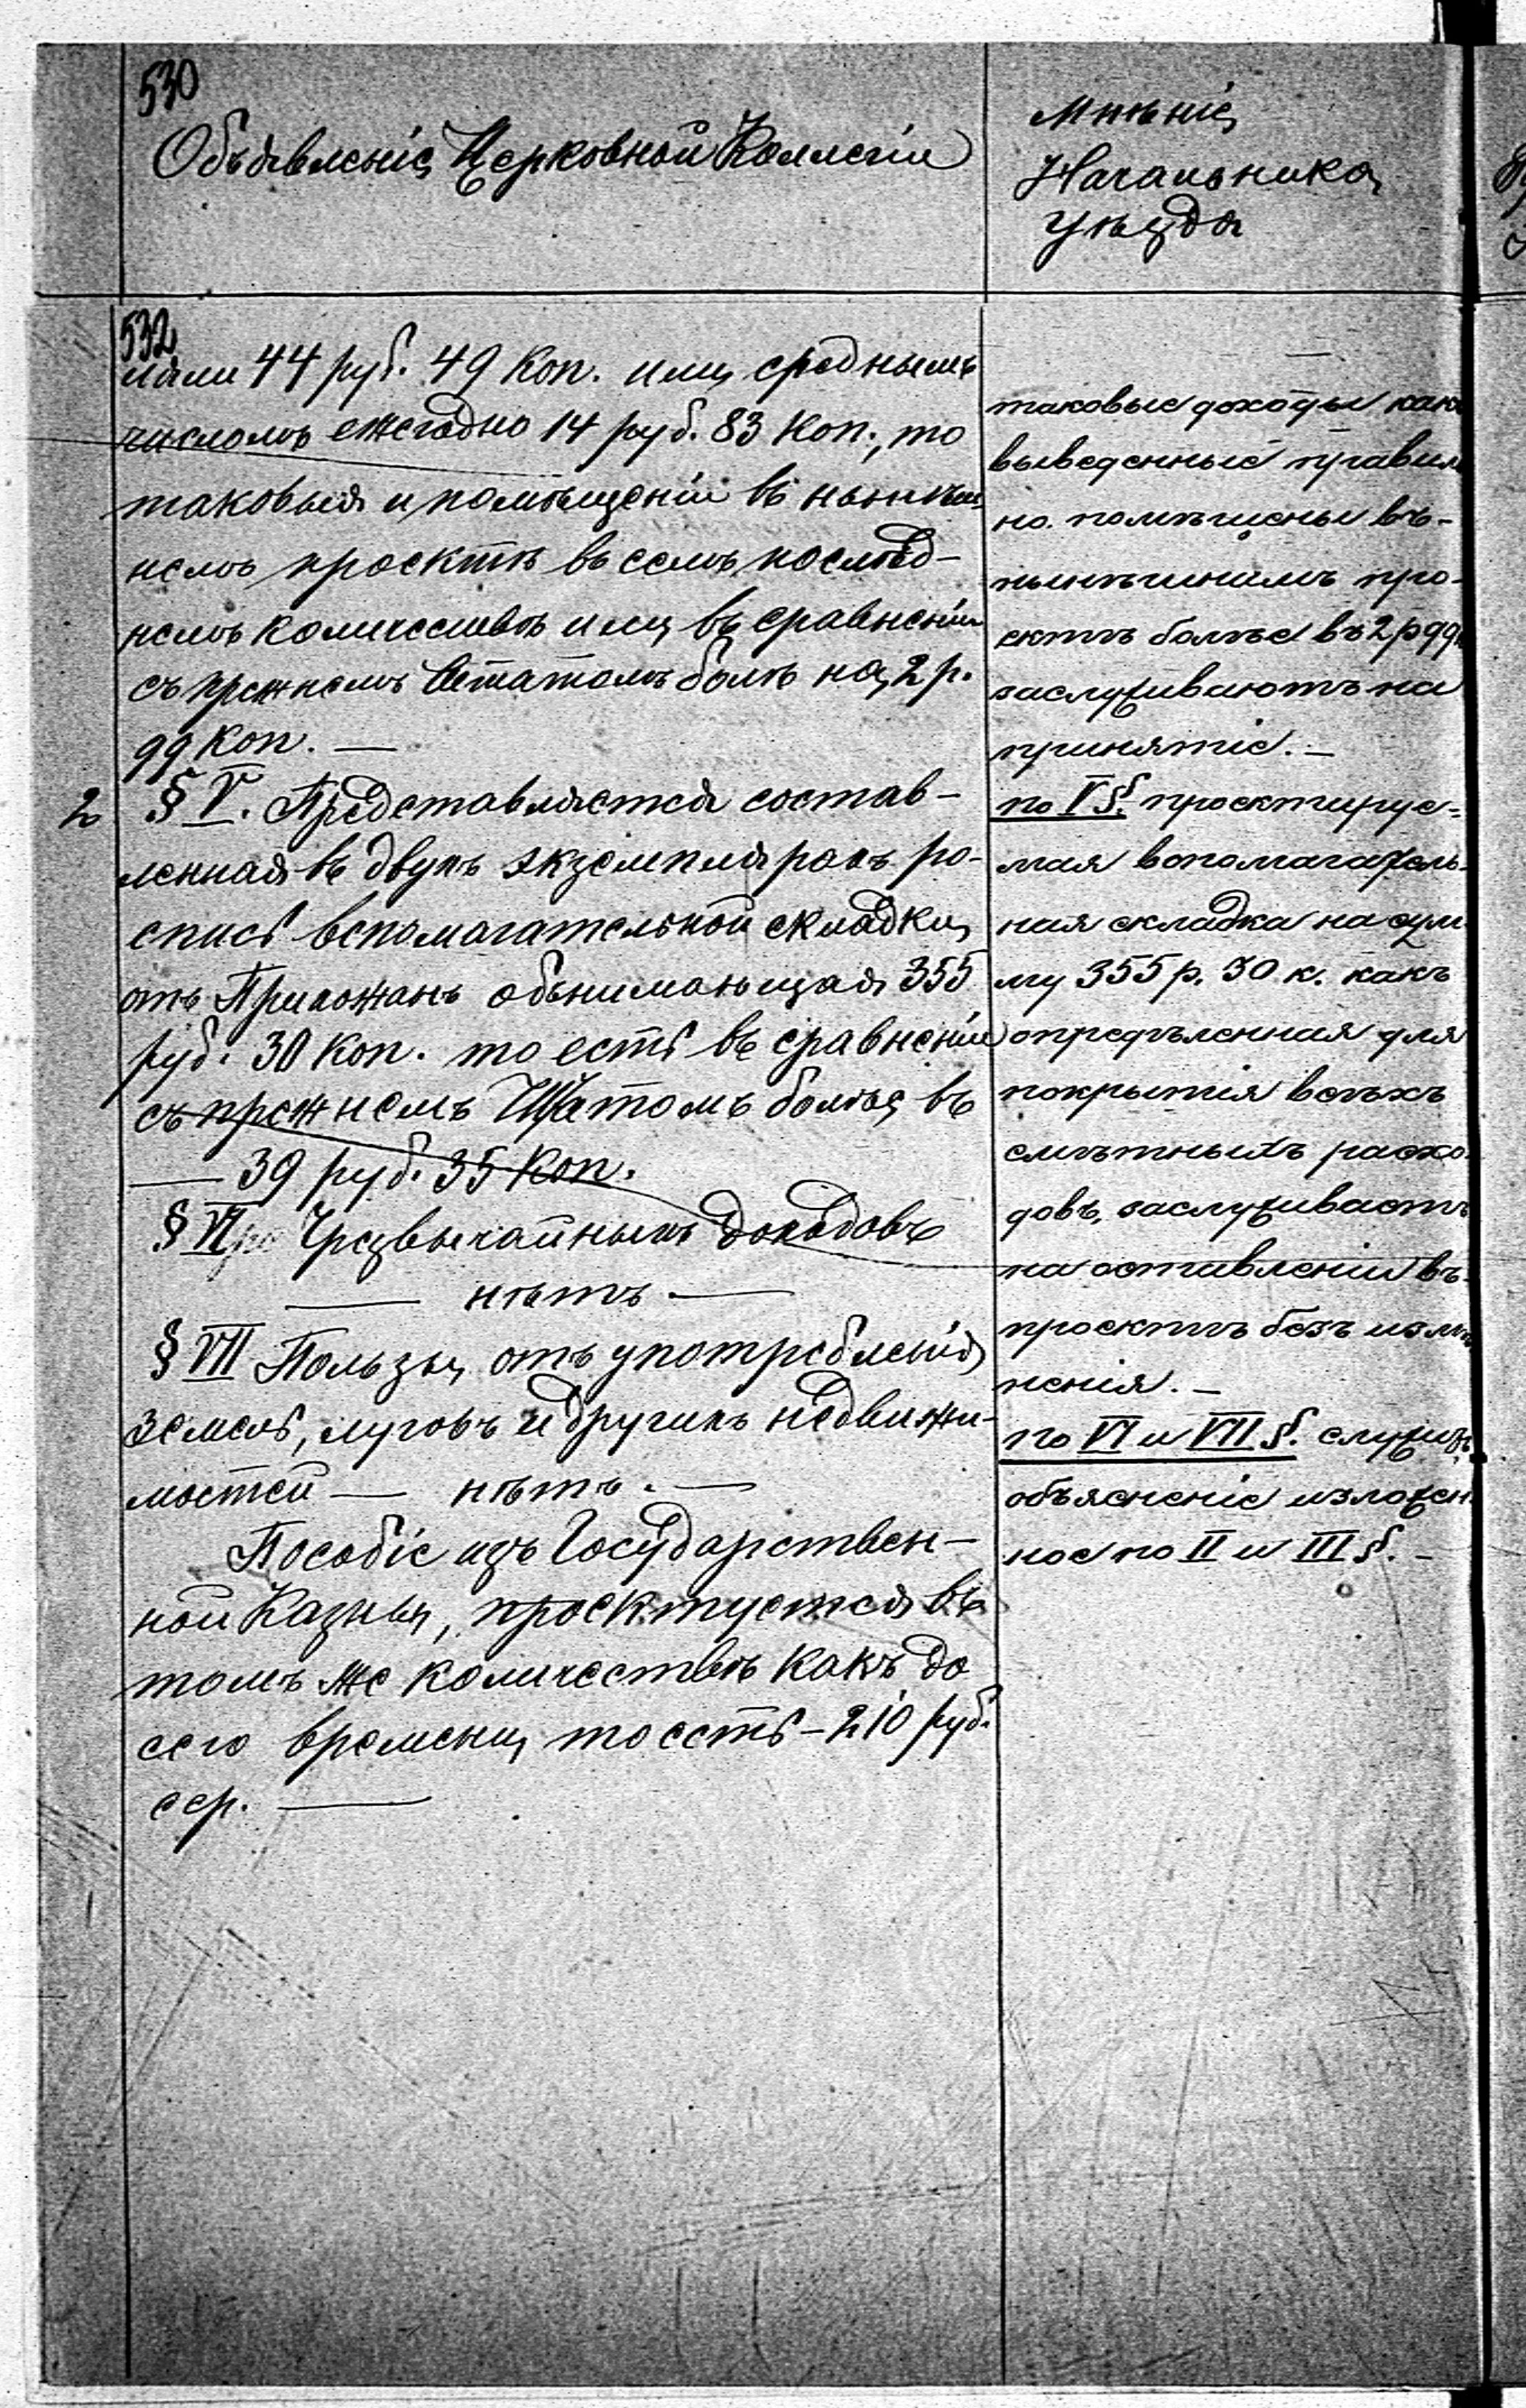 530
Объявленіе Церковной Коллегіи
Мнѣніе
Начальника
Уѣзда
532
лали 44 руб. 49 коп. или среднымъ
числомъ ежегодно 14 руб. 83 коп., то
таковыя и помѣщеніи въ нынѣш-
немъ проектѣ въ семъ послѣд-
немъ количествѣ или въ сравненіи
съ прежнемъ Штатомъ болѣ на 2 р.
99 коп. —
2 § V. Представляется состав-
ленная въ двухъ экземплярахъ ро-
спись вспомагательной складки
отъ Прихожанъ обънимающая 355
руб. 30 коп. то есть въ сравненіи
съ прежнемъ Штатомъ болѣе въ
— 39 руб. 35 коп.
§ VI Чрезвычайныхъ доходовъ
— нѣтъ —
§ VII Пользы отъ употребленія
земель, луговъ и другихъ недвижи-
мостей — нѣтъ. —
Пособіе изъ Государствен-
ной Казны, проектуется въ
томъ же количествѣ какъ до
сего времени то есть — 210 руб.
сер. —
—
таковые доходы какъ
выведенные правиль
но. помѣщены въ-
нынѣшнимъ про-
ектѣ болѣе въ 2 р 99 к
заслуживаютъ на
принятіе. —
по V §. проектируе-
мая вспомагатель-
ная складка на сум
му 355 р. 30 к. какъ
опредѣленная для
покрытія всѣхъ
смѣтныхъ расхо-
довъ, заслуживаетъ
на оставленіи въ-
проектѣ безъ измѣ
ненія. —
по VI и VII §. служитъ
объясненіе изложен-
ное по II и III §. —